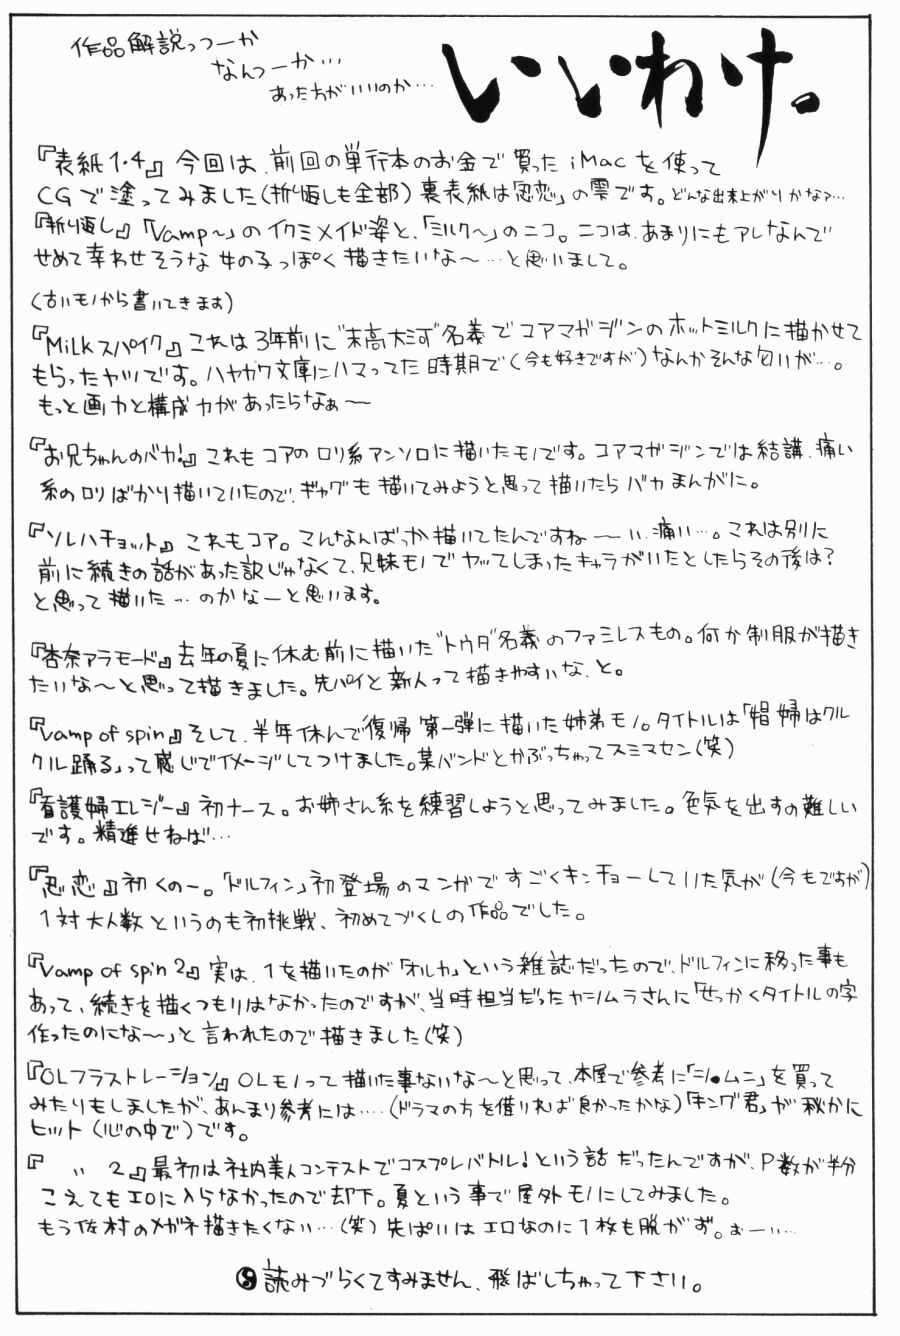 作品解説っつーか
なんつーか…
あった方がいいのか…
いいわけ。
『表紙1・4』今回は、前回の単行本のお金で買ったiMacを使って
CGで塗ってみました(折り返しも全部)裏表紙は「忍恋」の雫です。どんな出来上がりかなァ…
『折り返し』「Vamp〜」のイクミメイド姿と、「ミルク〜」のニコ。ニコは、あまりにもアレなんで
せめて幸わせそうな女の子っぽく描きたいな〜…と思いまして。
(古いモノから書いてきます)
『Milkスパイク』これは3年前に"末高大河"名義でコアマガジンのホットミルクに描かせて
もらったヤツです。ハヤカワ文庫にハマってた時期で(今も好きですが)なんかそんな匂いが…。
もっと画力と構成力があったらなぁ〜
『お兄ちゃんのバカ!』これもコアのロリ系アンソロに描いたモノです。コアマガジンでは結講、痛い
系のロリばかり描いていたので、ギャグも描いてみようと思って描いたらバカまんがに。
『ソルハチョット』これもコア。こんなんばっか描いてたんですね〜い、痛い…。これは別に
前に続きの話があった訳じゃなくて、兄妹モノでヤッてしまったキャラがいたとしたらその後は?
と思って描いた…のかなーと思います。
『杏奈アラモード』去年の夏に休む前に描いた"トウダ"名義のファミレスもの。何か制服が描き
たいな〜と思って描きました。先パイと新人って描きやすいな、と。
『Vamp of spin』そして、半年休んで復帰第一弾に描いた姉弟モノ。タイトルは「娼婦はクル
クル踊る」って感じでイメージしてつけました。某バンドとかぶっちゃってスミマセン(笑)
『看護婦エレジー』初ナース。お姉さん系を練習しようと思ってみました。色気を出すの難しい
です。精進せねば…
『忍恋』初くのー。「ドルフィン」初登場のマンガですごくキンチョーしていた気が(今もですが)
1対大人数というのも初挑戦、初めてづくしの作品でした。
『Vamp of spin 2』実は、1を描いたのが「オルカ」という雑誌だったので、ドルフィンに移った事も
あって、続きを描くつもりはなかったのですが、当時担当だったヤシムラさんに「せっかくタイトルの字
作ったのにな〜」と言われたので描きました(笑)
『OLフラストレーション』OLモノって描いた事ないな〜と思って、本屋で参考に「シ●ムニ」を買って
みたりもしましたが、あんまり参考には…‥(ドラマの方を借りれば良かったかな)「キング君」が秘かに
ヒット(心の中で)です。
『 〃 2』最初は社内美人コンテストでコスプレバトル!という話だったんですが、P数が半分
こえてもエロに入らなかったので却下。夏という事で屋外モノにしてみました。
もう佐村のメガネ描きたくない…(笑)先ぱいはエロなのに1枚も脱がず。おー‥…
読みづらくてすみません、飛ばしちゃって下さい。